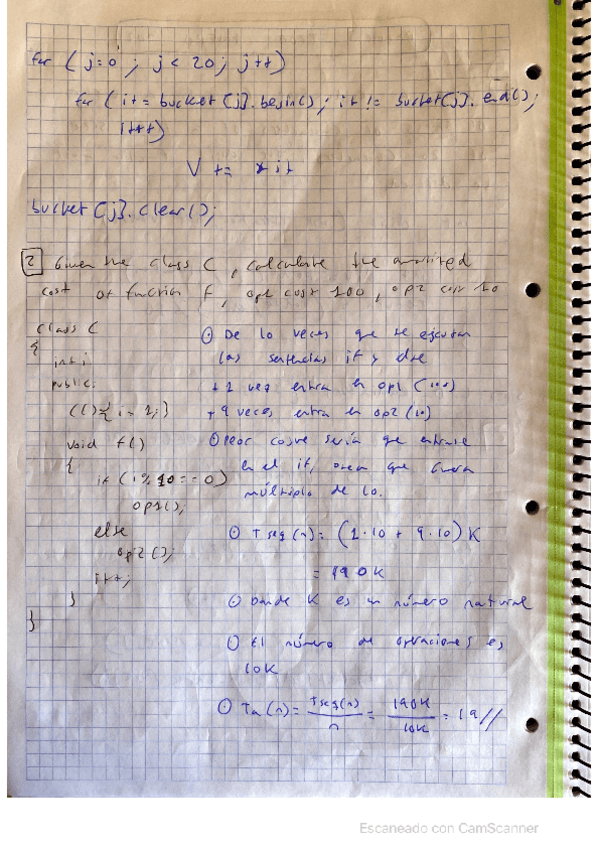 for (j=0 ; j < 20; j++)
for (it = bucket[j].begin(); it != bucket[j].end();
it++)
V += *it
bucket[j].clear();
2 Given the class C, calculate the amortized
cost of function f, op1 cost 100, op2 cost 10
class C
{
int i
public:
C(){i = 1;}
void f()
{
if (i%10==0)
op1();
else
op2();
i++;
}
}
De 10 veces que se ejecutan
las sentencias if y else
+ 1 vez entra en op1 (100)
+ 9 veces entra en op2 (10)
Peor cosve sería que entrase
en el if, osea que fuera
múltiplo de 10.
T seq(n) = (1·10 + 9·10) K
= 190K
Donde K es un número natural
El número de operaciones es
10K
Ta(n) = Tseq(n)/n = 190K/10K = 19//
Escaneado con CamScanner